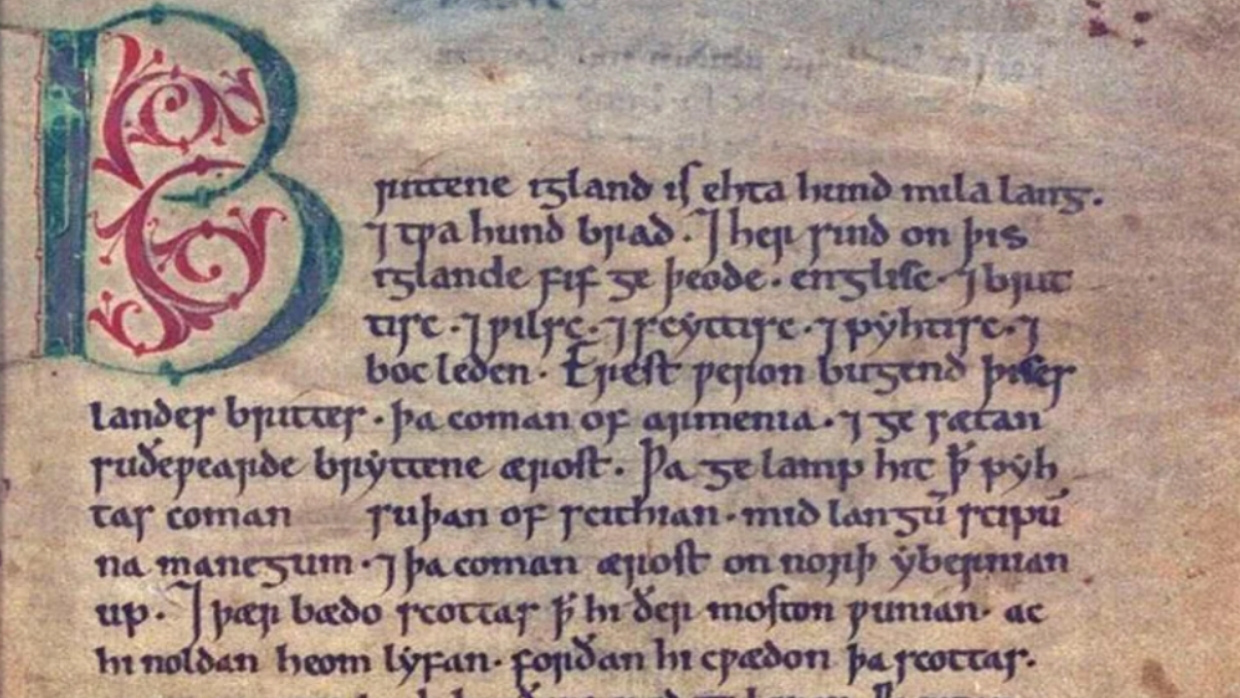 Brittene igland is ehta hund mila lang.
⁊ tƿa hund brad. ⁊ her sind on þis
iglande fif ge þeode. englisc. ⁊ brit
tisc. ⁊ ƿilsc. ⁊ scẏttisc. ⁊ pẏhtisc. ⁊
boc leden. Erest ƿeron bugend þises
landes brittes. þa coman of armenia. ⁊ ge sætan
suðeƿearde brẏttene ærost. Þa ge lamp hit ꝥ pẏh
tas coman suþan of scithian. mid langū scipū
na manegum. ⁊ þa coman ærost on norþ ẏbernian
up. ⁊ þær bædo scottas ꝥ hi ðer moston ƿunian. ac
hi noldan heom lẏfan. forðan hi cƿædon þa scottas.